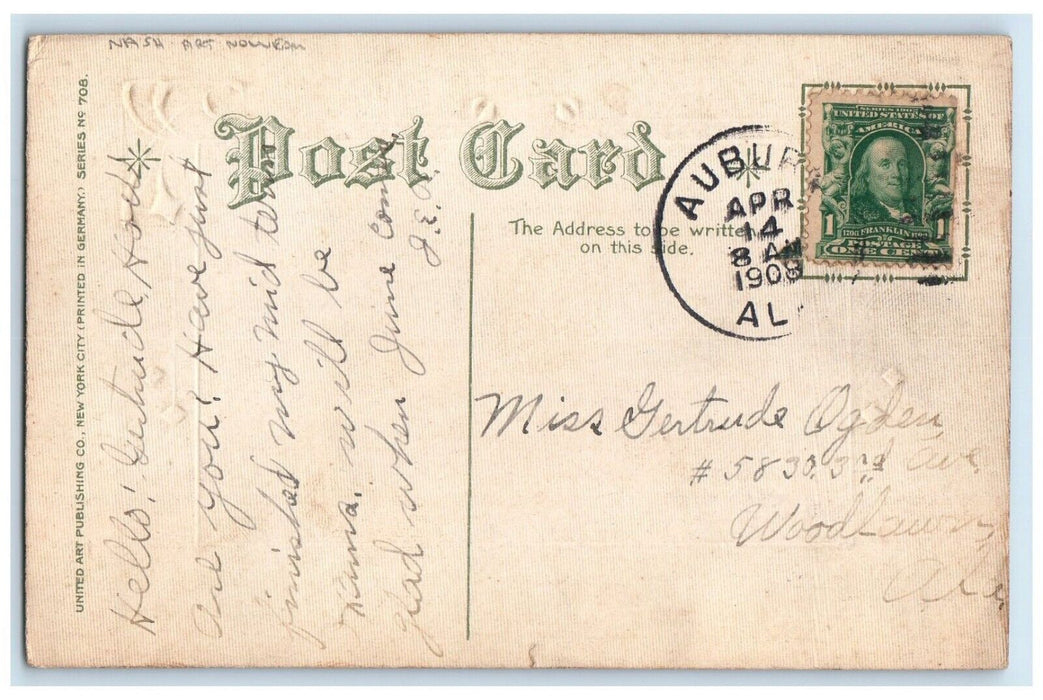 NASH ART NOUVEAU
UNITED ART PUBLISHING CO., NEW YORK CITY (PRINTED IN GERMANY.) SERIES No 708.
Post Card
The Address to be written
on this side.
AUBURN
APR
14
8 AM
1908
ALA
SERIES 1902
UNITED STATES OF
AMERICA
1 1706 FRANKLIN 1790 1
POSTAGE
ONE CENT
Hello! Gertude, How
are you? Have just
finished my mid term
Exams. will be
glad when June come
J.E.
Miss Gertrude Ogden
# 5830 3rd Ave.
Woodlawn,
Ala,